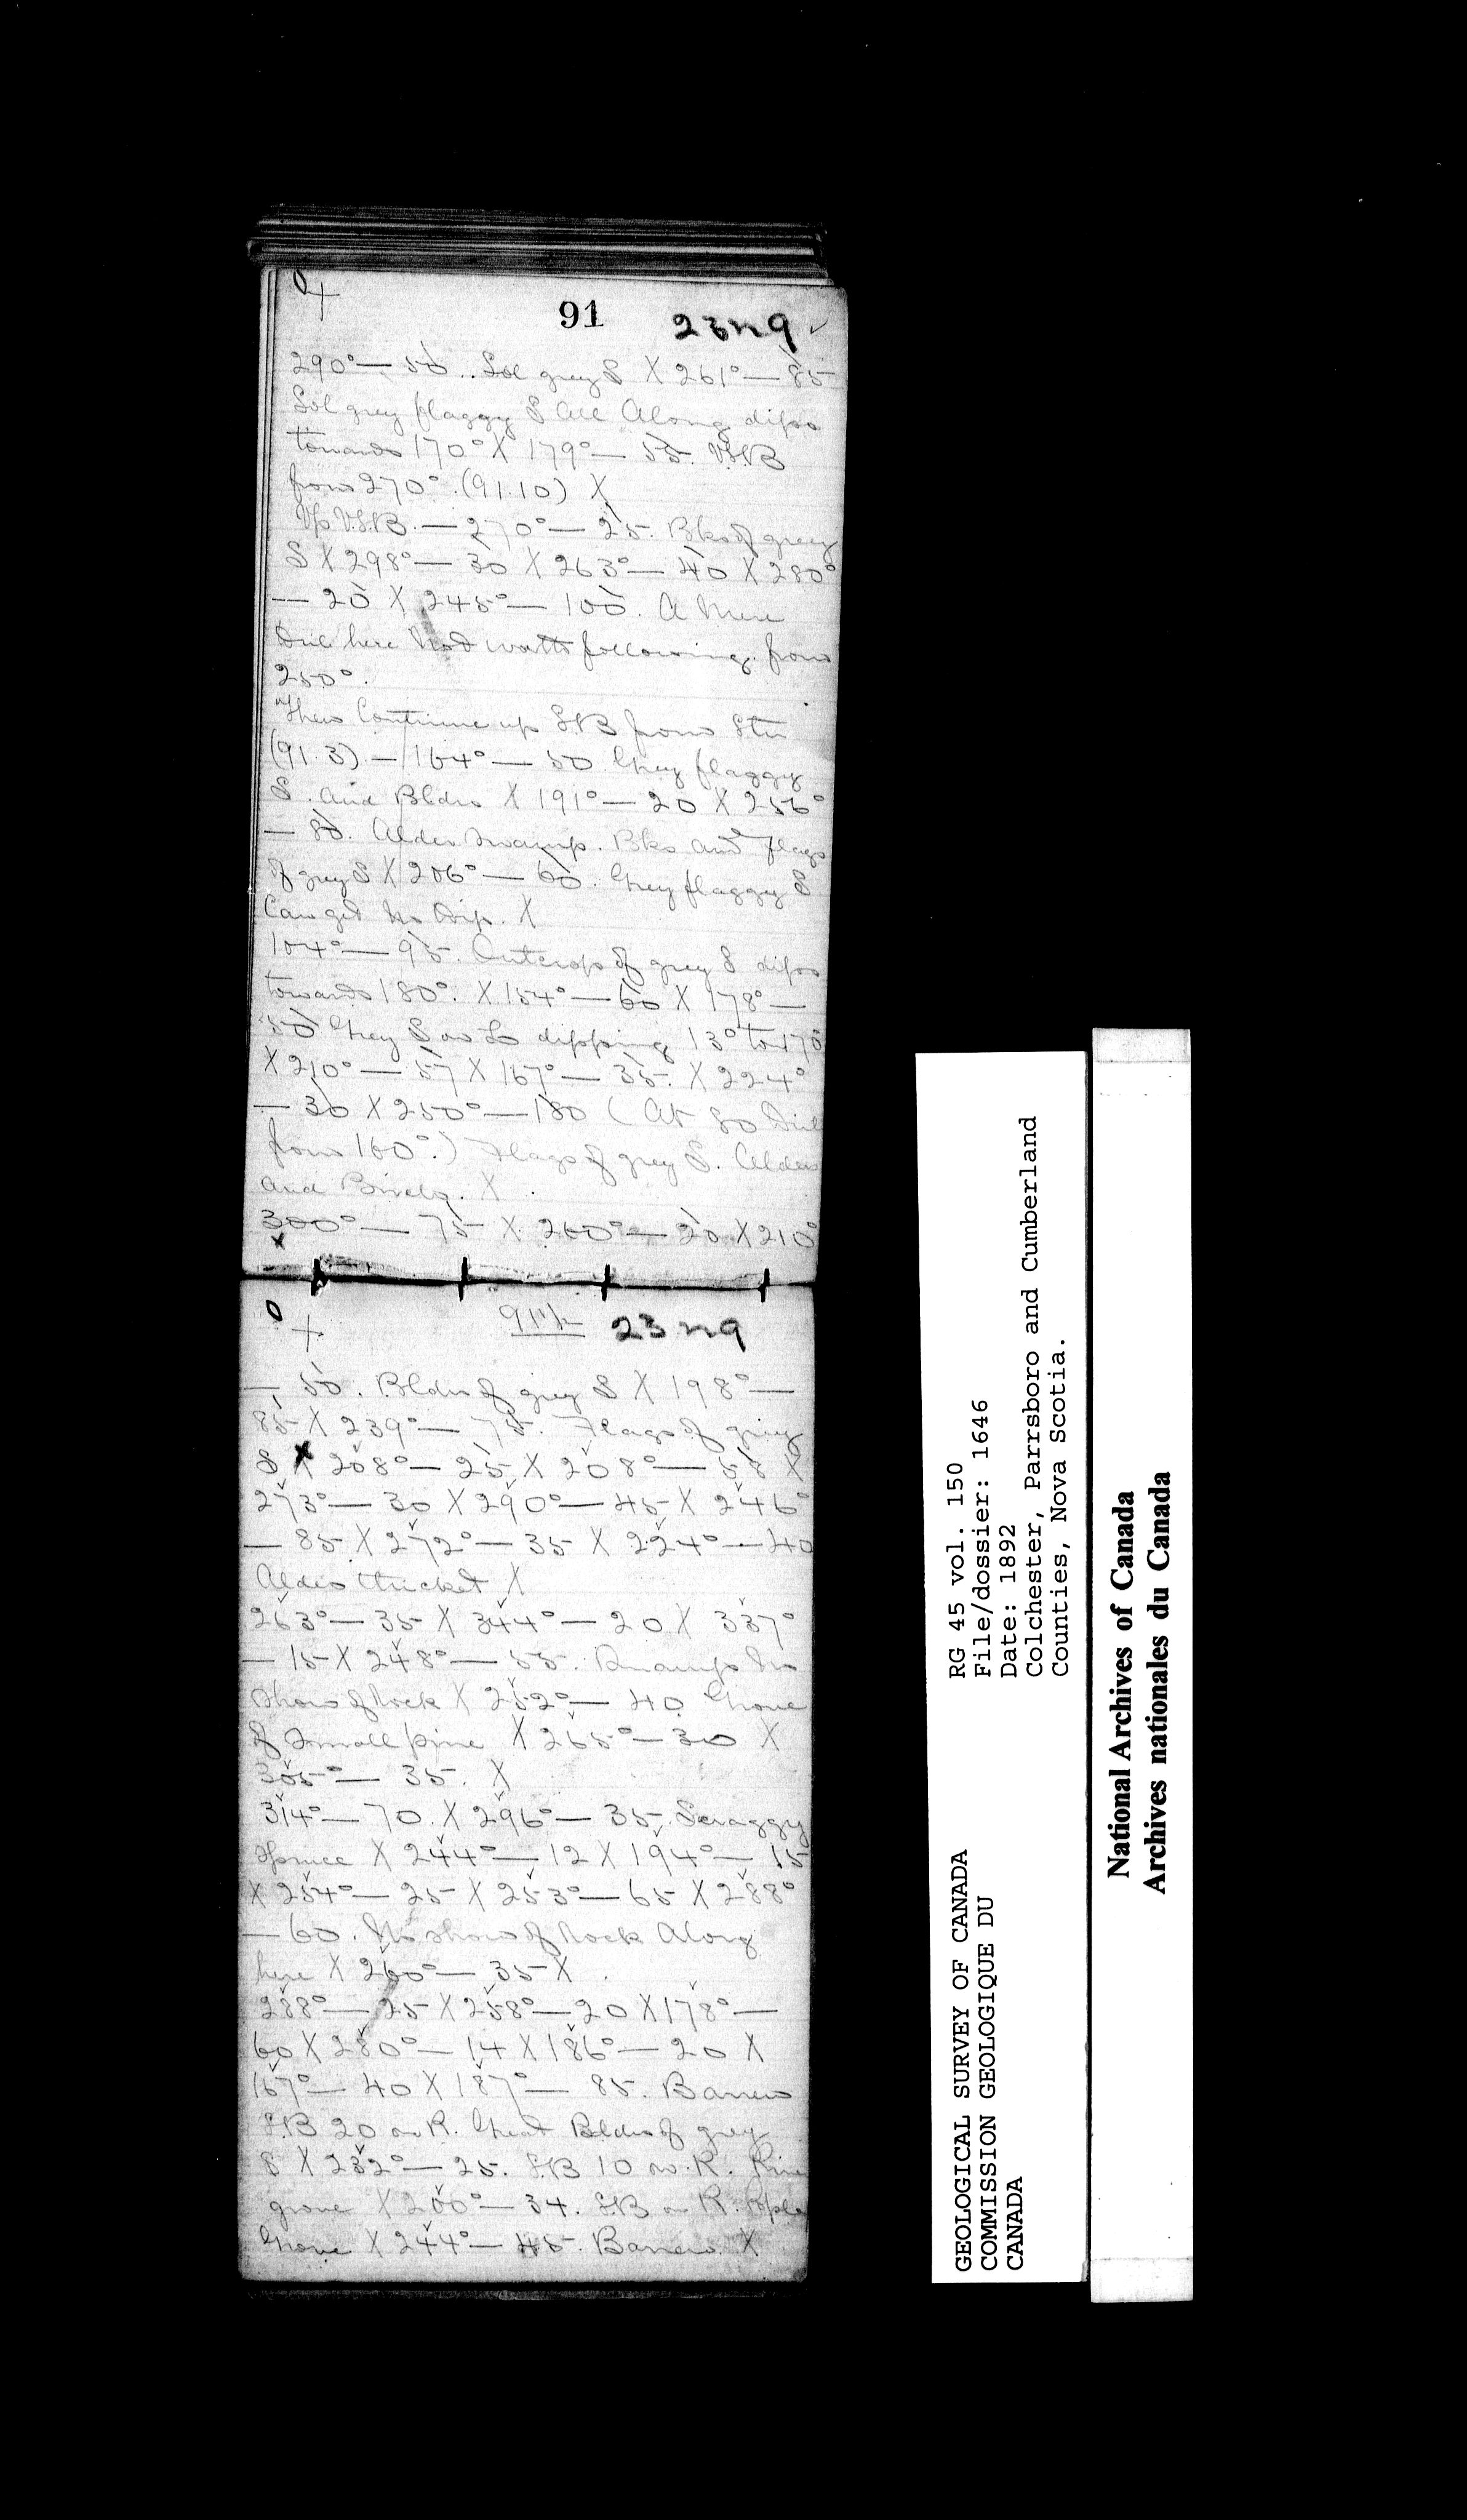 91 23n9
290°— 50.. Sol grey S X 261°— 85
Sol grey flaggy S All Along dips
towards 170° X 179°— 55. V.S.B
from 270°. (91.10) X
Up V.S.B.— 270°— 25. Bks of grey
S X 298°— 30 X 263°— 40 X 280°
— 20 X 245°— 100. A Mere
Dril here Not worth following. from
250°.
Then Continue up S.B from Stn
(91.3).— 164°— 50 Grey flaggy
S. and Bldrs X 191°— 20 X 256°
— 80. Alder Swamp. Bks and flags
of grey S X 206°— 60. Grey flaggy S
Can get No Dip. X
104°— 95. Outcrop of grey S dips
towards 180°. X 154°— 60 X 178°—
50 Grey S as Lo dipping 13° to 170
X 210°— 57 X 167°— 35. X 224°
— 30 X 250°— 180 (At 80 Dril
from 160°.) Flags of grey S. Alders
and X
300°— 75 X 260°— 20 X 210°
91½ 23n9
— 50. Bldrs of grey S X 198°—
85 X 239°— 75. Flags of grey
S X 208°— 25 X 208°— 58 X
273°— 30 X 290°— 45 X 246°
— 85 X 272°— 35 X 224°— 40
Alder thicket X
263°— 35 X 344°— 20 X 337°
— 15 X 248°— 55. Swamp No
Show of Rock X 252°— 40 Grove
of Small pine X 265°— 30 X
305°— 35. X
314°— 70. X 296°— 35. Scraggy
Spruce X 244°— 12 X 194°— 15
X 254°— 25 X 253°— 65 X 288°
— 60. No show of Rock Along
here X 260°— 35 X
288°— 25 X 258°— 20 X 178°—
60 X 280°— 14 X 186°— 20 X
167°— 40 X 187°— 85. Barren
S.B 20 on R. Great Bldrs of grey
S X 232°— 25. S.B 10 on R. Pine
grove X 200°— 34. S.B on R.
Grove X 244°— 45. Barren. X
GEOLOGICAL SURVEY OF CANADA
COMMISSION GEOLOGIQUE DU
CANADA
RG 45 vol. 150
File/dossier: 1646
Date: 1892
Colchester, Parrsboro and Cumberland
Counties, Nova Scotia.
National Archives of Canada
Archives nationales du Canada